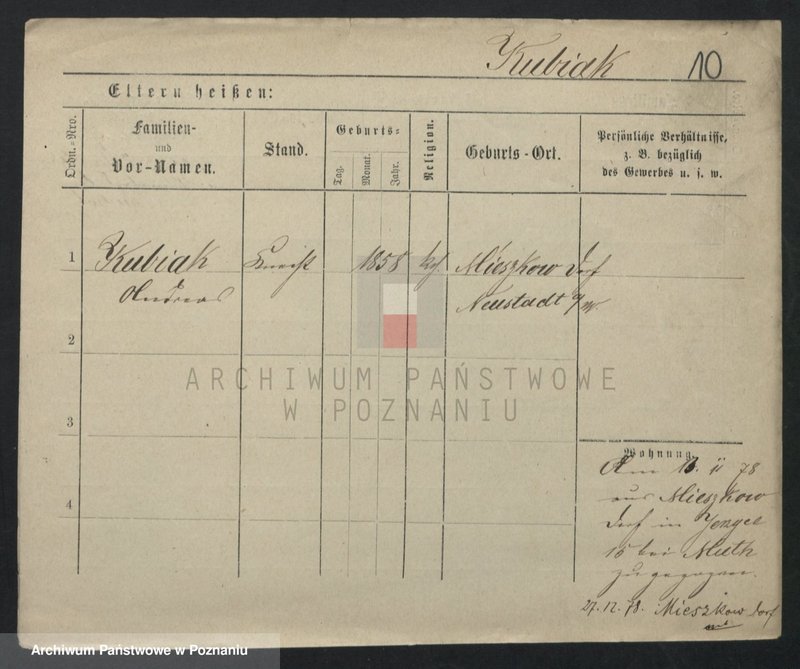 Kubiak 10
Eltern heißen:
Ordn.-Nro.
Familien-
und
Vor-Namen.
Stand.
Geburts-
Tag.
Monat.
Jahr.
Religion.
Geburts-Ort.
Persönliche Verhältnisse,
z. B. bezüglich
des Gewerbes u. s. w.
1 Kubiak Knecht 1858 kg. Mieszkow Dorf
Andreas Neustadt a/W.
2
ARCHIWUM PAŃSTWOWE
W POZNANIU
3
4
Wohnung.
Am 11 78
aus Mieszkow
Dorf in
15 bei Muth
zugezogen.
27.12.78. Mieszkow Dorf
Archiwum Państwowe w Poznaniu